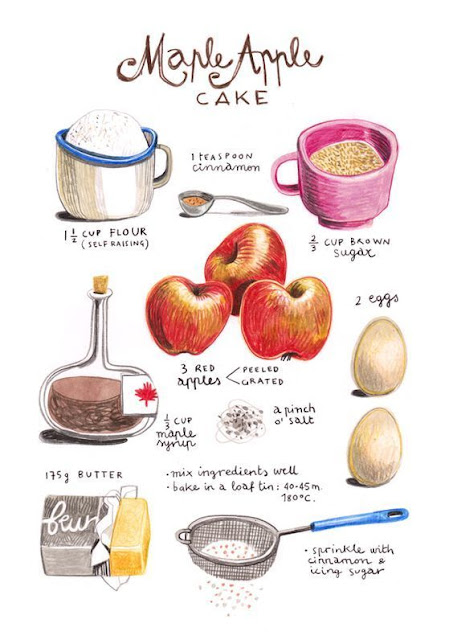 Maple Apple
CAKE
1 TEASPOON
cinnamon
1 1/2 CUP FLOUR
(SELF RAISING)
2/3 CUP BROWN
sugar
2 eggs
3 RED
apples
PEELED
GRATED
1/3 CUP
maple
syrup
a pinch
o' salt
175g BUTTER
beur
• mix ingredients well
• bake in a loaf tin: 40-45m.
180°C.
• sprinkle with
cinnamon &
icing sugar